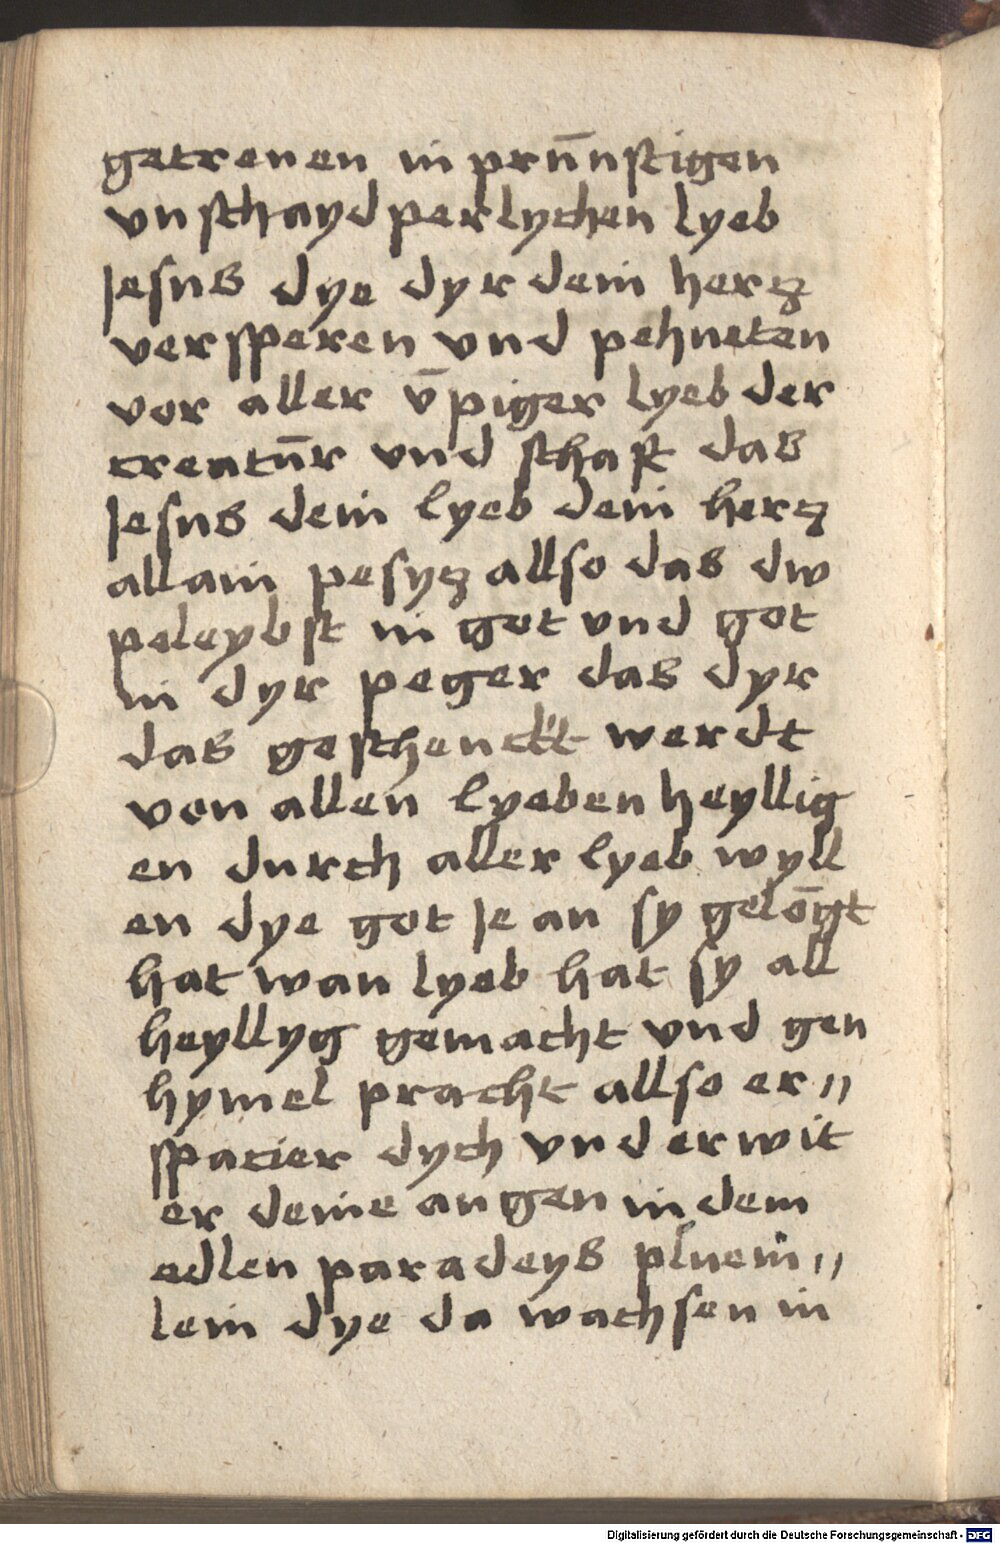 getreuen in prūnstigen
vnschaydperlychen lyeb
Jesus dye dyr dein hercz
versperen vnd pehueten
vor aller v̄piger lyeb der
creatūr vnd schaff das
Jesus dein lyeb dein hercz
allain pesycz allso das dw
peleybst in got vnd got
in dyr peger das dyr
das geschenckt werdt
von allen lyeben heyllig
en durch aller lyeb wyll
en dye got Je an sy gelōgt
hat wan lyeb hat sy all
heyllyg gemacht vnd gen
hymel pracht allso er〃
spacier dych vnd erwit
er deine augen in dem
edlen paradeys pluem〃
lein dye da wachsen in
Digitalisierung gefördert durch die Deutsche Forschungsgemeinschaft - DFG